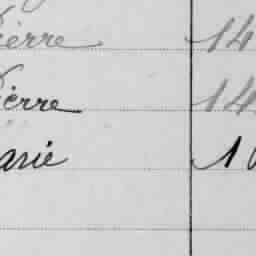 Pierre 14
Pierre 14
arie 1